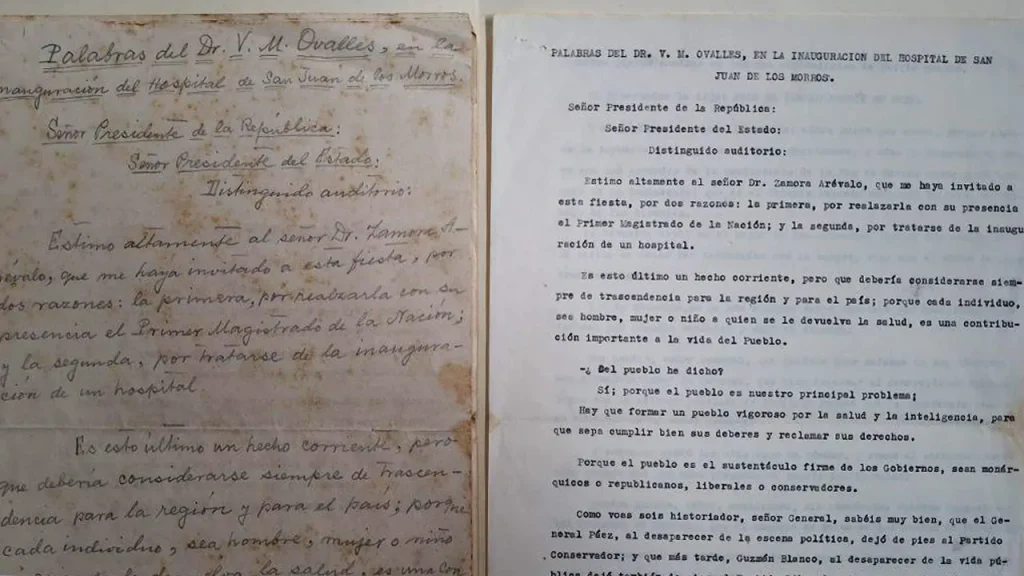 Palabras del Dr. V. M. Ovalles, en la
inauguración del Hospital de San Juan de los Morros.
Señor Presidente de la República:
Señor Presidente del Estado:
Distinguido auditorio:
Estimo altamente al señor Dr. Zamora A-
révalo, que me haya invitado a esta fiesta, por
dos razones: la primera, por realzarla con su
presencia el Primer Magistrado de la Nación;
y la segunda, por tratarse de la inaugura-
ción de un hospital.
Es esto último un hecho corriente, pero
que debería considerarse siempre de trascen-
dencia para la región y para el país; porque
cada individuo, sea hombre, mujer o niño
la salud, es una con
PALABRAS DEL DR. V. M. OVALLES, EN LA INAUGURACION DEL HOSPITAL DE SAN
JUAN DE LOS MORROS.
Señor Presidente de la República:
Señor Presidente del Estado:
Distinguido auditorio:
Estimo altamente al señor Dr. Zamora Arévalo, que me haya invitado a
esta fiesta, por dos razones: la primera, por realazarla con su presencia
el Primer Magistrado de la Nación; y la segunda, por tratarse de la inaugu
ración de un hospital.
Es esto último un hecho corriente, pero que debería considerarse siem-
pre de trascendencia para la región y para el país; porque cada individuo,
sea hombre, mujer o niño a quien se le devuelva la salud, es una contribu-
ción importante a la vida del Pueblo.
-¿ Del pueblo he dicho?
Sí; porque el pueblo es nuestro principal problema;
Hay que formar un pueblo vigoroso por la salud y la inteligencia, para
que sepa cumplir bien sus deberes y reclamar sus derechos.
Porque el pueblo es el sustentáculo firme de los Gobiernos, sean monár-
quicos o republicanos, liberales o conservadores.
Como voas sois historiador, señor General, sabéis muy bien, que el Ge-
neral Páez, al desaparecer de la escena política, dejó de pies al Partido
Conservador; y que más tarde, Guzmán Blanco, al desaparecer de la vida pú-
blica dejó también